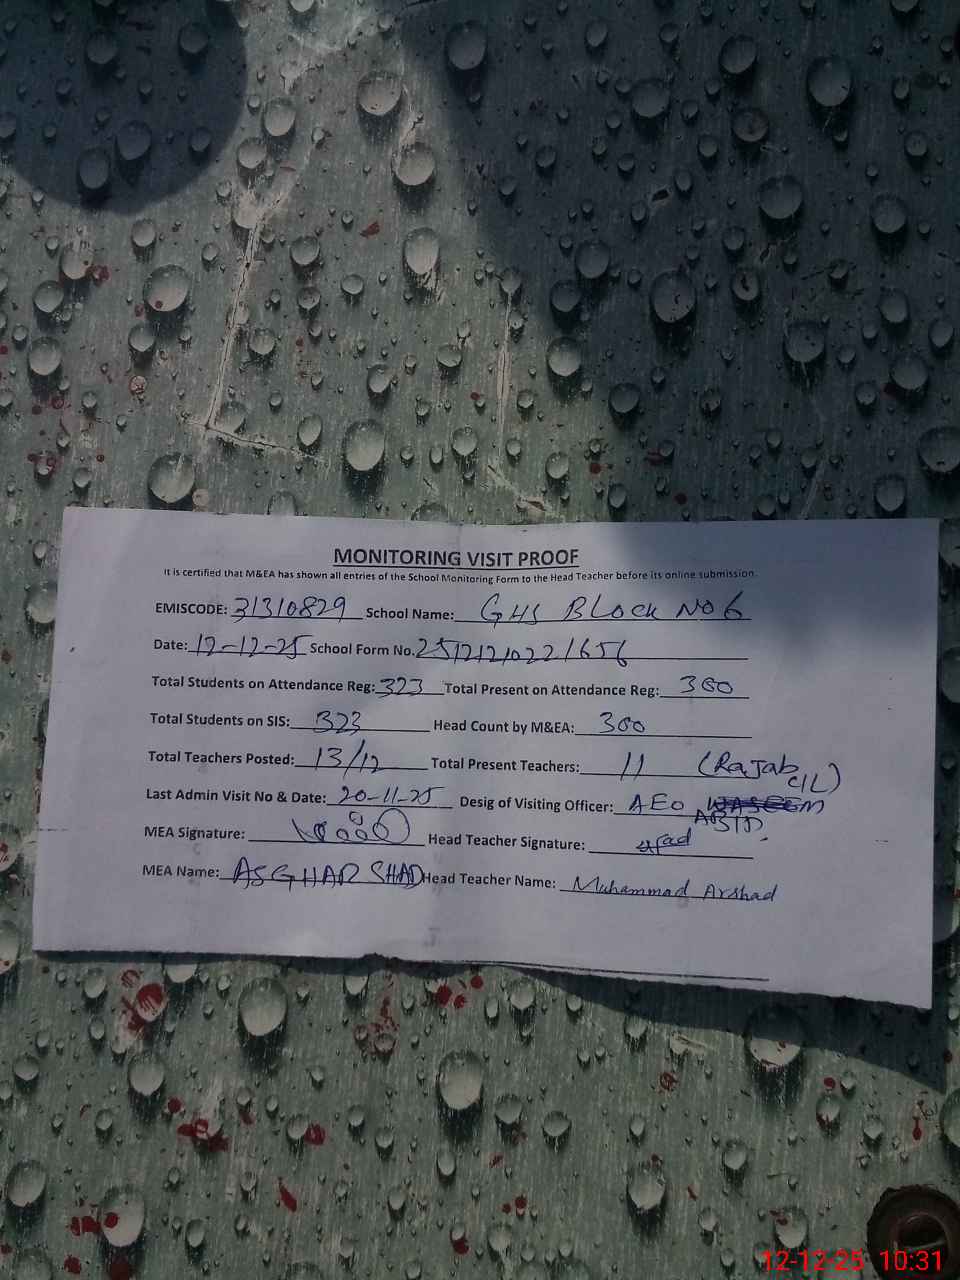 MONITORING VISIT PROOF
It is certified that M&EA has shown all entries of the School Monitoring Form to the Head Teacher before its online submission.
EMISCODE: 31310829 School Name: GHS BLock No 6
Date: 12-12-25 School Form No. 25121210221656
Total Students on Attendance Reg: 323 Total Present on Attendance Reg: 300
Total Students on SIS: 323 Head Count by M&EA: 300
Total Teachers Posted: 13/12 Total Present Teachers: 11 (Rajab C/L)
Last Admin Visit No & Date: 20-11-25 Desig of Visiting Officer: AEO
ABID
MEA Signature: Head Teacher Signature:
MEA Name: ASGHAR SHAD Head Teacher Name: Muhammad Arshad
12-12-25 10:31